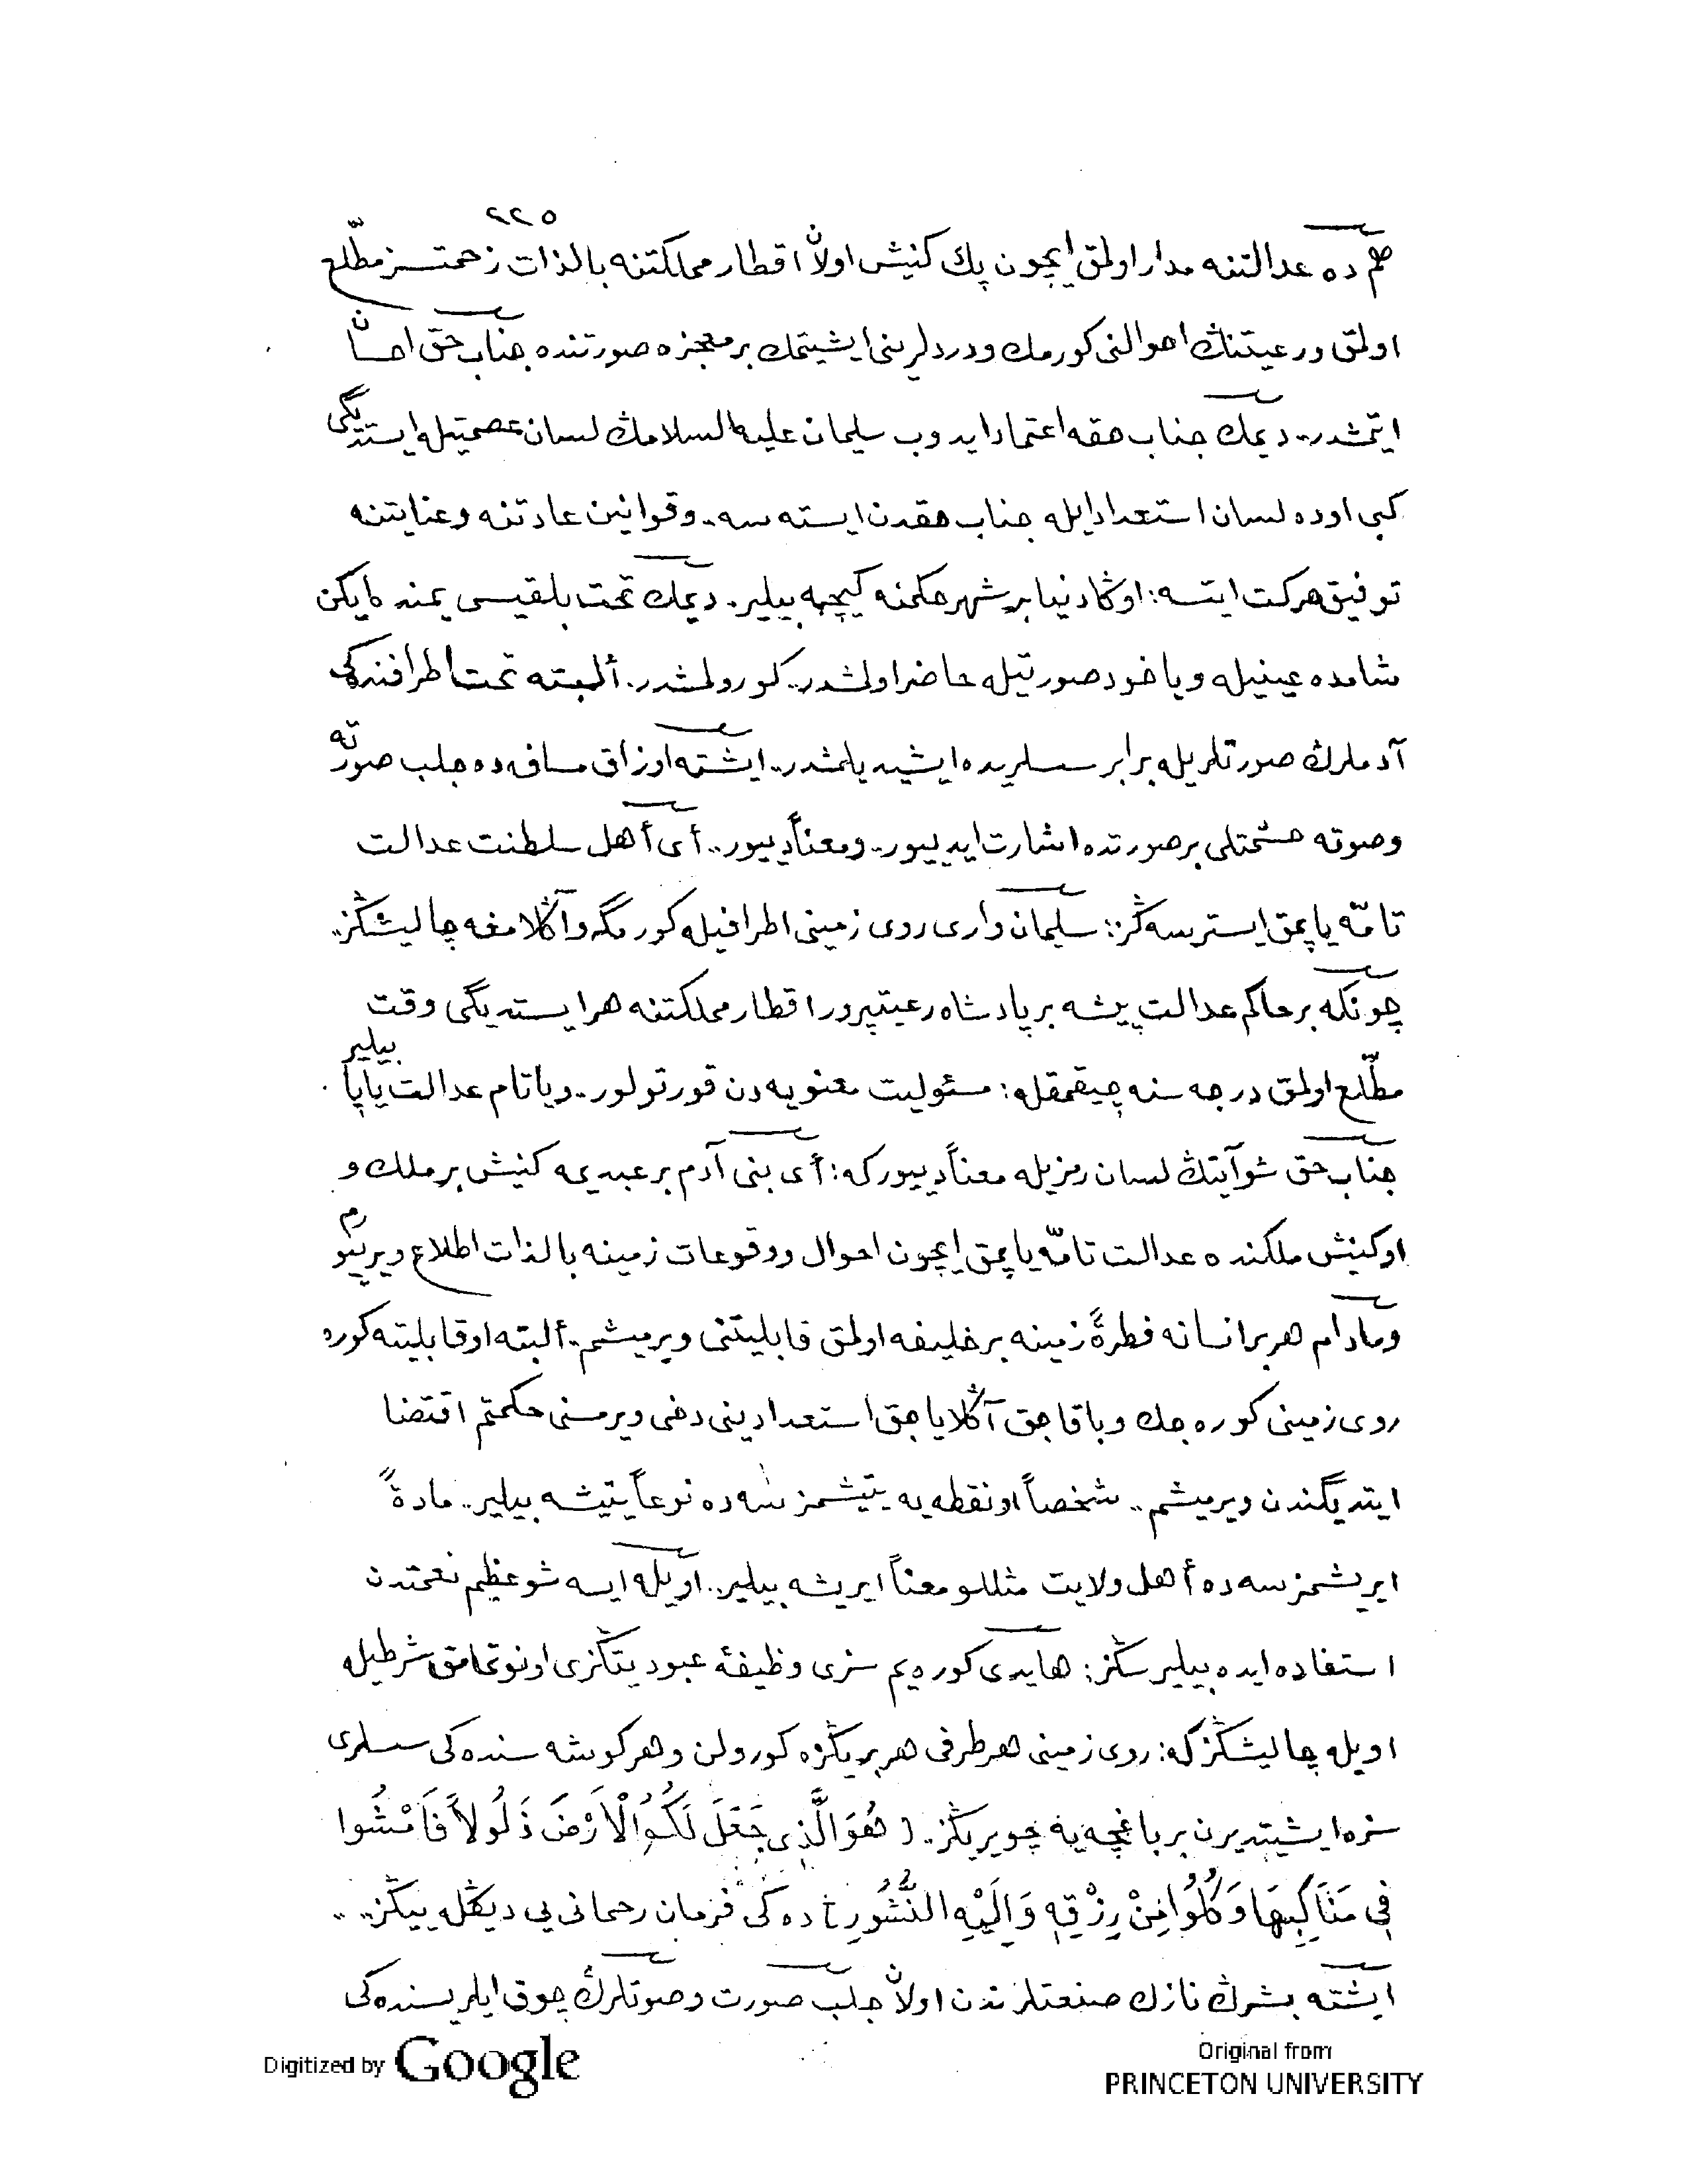 ٢٢٥
هم ده عدالتنه مدار اولمق ايچون پك كنيش اولان اقطار مملكتنه بالذات زحمتسز مطّلع
اولمق ورعيتنڭ احوالنى كورمك ودردلرينى ايشيتمك بر معجزه صورتنده جناب حق احسان
ايتمشدر.. ديمك جناب حقه اعتماد ايدوب سليمان عليه السلامڭ لسان عصمتيله ايستديگى
كبى او ده لسان استعداد ايله جناب حقدن ايسته سه.. وقوانين عادتنه وعنايتنه
توفيق حركت ايتسه: اوڭا دنيا بر شهر حكمنه كيچه بيلير. ديمك تخت بلقيسى يمنده ايكن
شامده عينيله وياخود صورتيله حاضر اولمشدر.. كورولمشدر. ألبته تخت اطرافنده كى
آدملرڭ صورتلريله برابر سسلريده ايشيديلمشدر.. ايشته اوزاق مسافه ده جلب صورته
وصوته حشمتلى بر صورتده اشارت ايدييور.. ومعناً دييور.. أى أهل سلطنت عدالت
تامّه ياپمق ايسترسه ڭز: سليمان وارى روى زمينى اطرافيله كورمگه وآڭلامغه چاليشڭز..
چونكه بر حاكم عدالت پيشه بر پادشاه رعيتپرور اقطار مملكتنه هر ايستديگى وقت
مطّلع اولمق درجه سنه چيقمقله: مسئوليت معنويه دن قورتولور.. ويا تام عدالت ياپا بيلير
جناب حق شو آيتڭ لسان رمزيله معناً دييور كه: أى بنى آدم بر عبديمه كنيش بر ملك و
او كنيش ملكنده عدالت تامّه ياپمق ايچون احوال ووقوعات زمينه بالذات اطلاع ويرييورم
ومادام هر بر انسانه فطرةً زمينه بر خليفه اولمق قابليتنى ويرميشم.. ألبته او قابليته كوره
روى زمينى كوره جك وباقاجق آڭلاياجق استعدادينى دخى ويرمسنى حكمتم اقتضا
ايتديگندن ويرميشم.. شخصاً او نقطه يه يتيشمزسه ده نوعاً يتيشه بيلير.. مادةً
ايريشمزسه ده أهل ولايت مثللو معناً ايريشه بيلير.. اويله ايسه شو عظيم نعمتدن
استفاده ايده بيليرسڭز: هايدى كوره يم سزى وظيفۀ عبوديتڭزى اونوتمامق شرطيله
اويله چاليشڭز كه: روى زمينى هر طرفى هر بريڭزه كورولن وهر كوشه سنده كى سسلرى
سزه ايشيتديرن بر باغچه يه چويريڭز.. ﴿ هُوَ الَّذِى جَعَلَ لَكُمُ الْاَرْضَ ذَلُولاً فَامْشُوا
فِى مَنَاكِبِهَا وَكُلُوا مِنْ رِزْقِهِ وَاِلَيْهِ النُّشُورُ ﴾ ده كى فرمان رحمانى يى ديڭله ييڭز..
ايشته بشرڭ نازك صنعتلرندن اولان جلب صورت وصوتلرڭ چوق ايلريسنده كى
Digitized by Google
Original from
PRINCETON UNIVERSITY